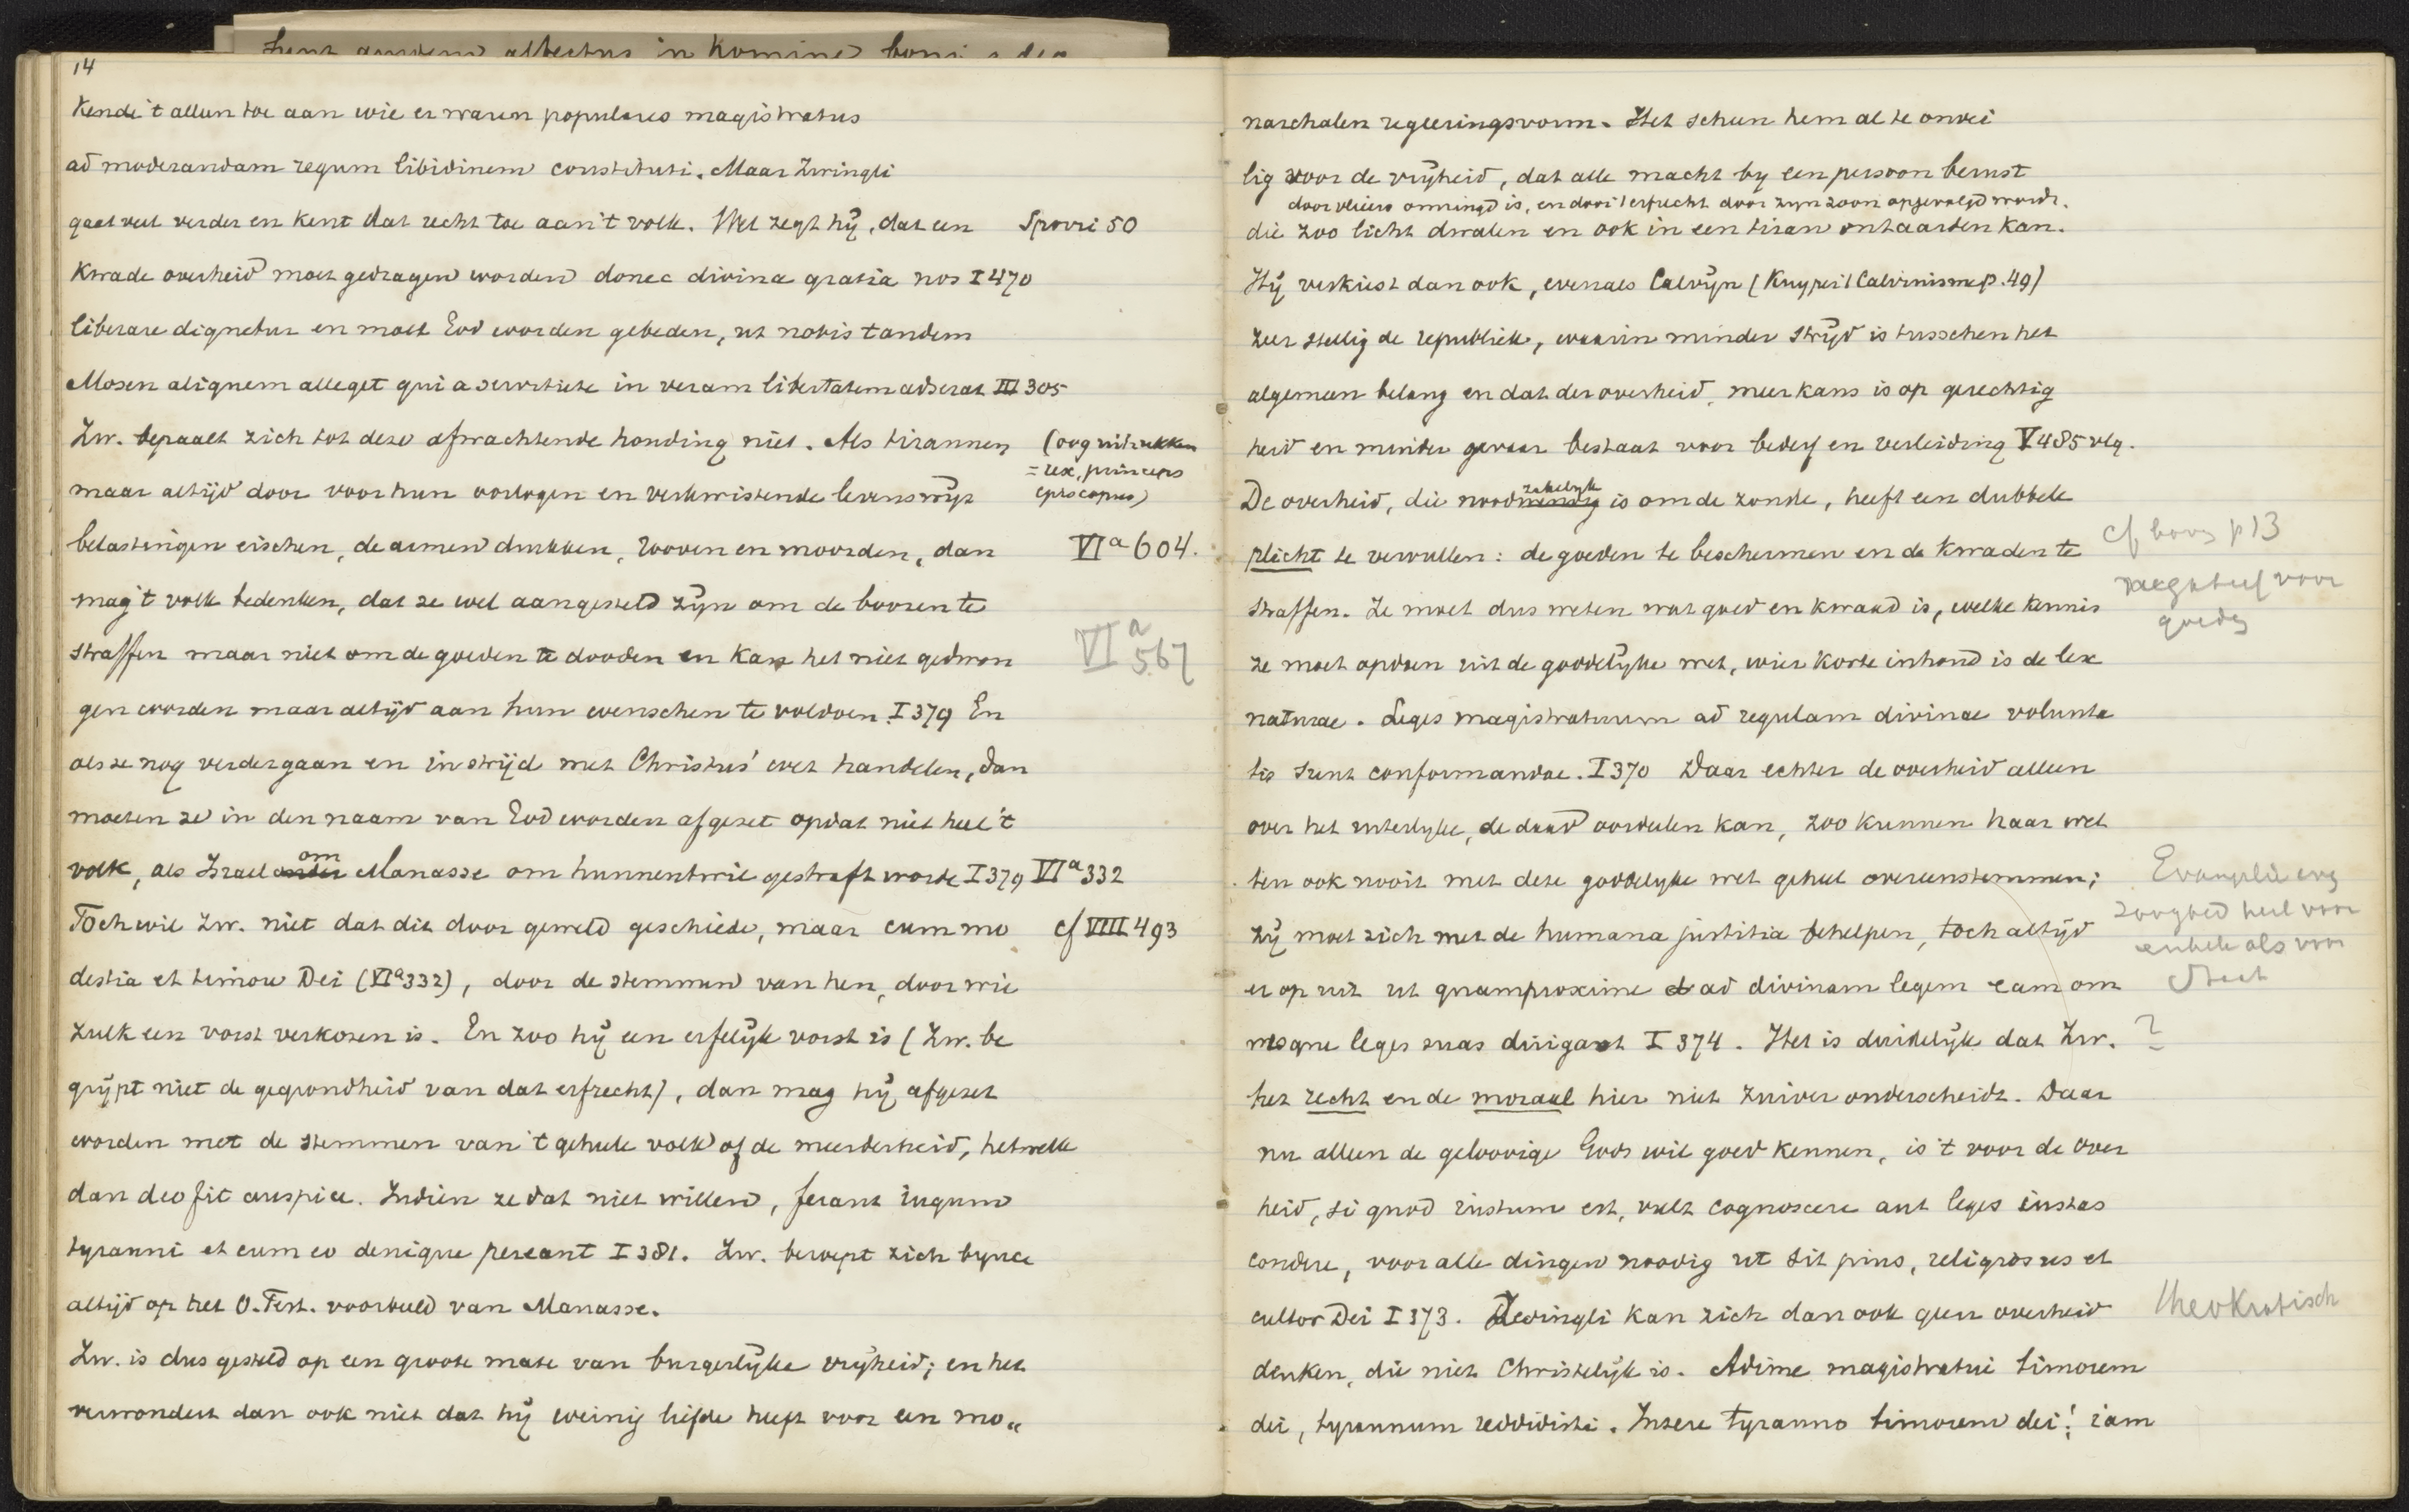 Sunt autem albectus in homine boni
14
Kende 't alleen toe aan wie er waren populares magistratus
ad moderandam regum libidinem constituti. Maar Zwingli
gaat veel verder en kent dat recht toe aan 't volk. Wel zegt hij, dat een Sporri 50
Kwade overheid moet gedragen worden donec divina gratia nos I 470
liberare dignetur en moet God worden gebeden, ut nobis tandem
Mosen aliquem alleget qui a servitute in veram libertatem adserat III 305
Zw. bepaalt zich tot deze afwachtende houding niet. Als tirannen (oog uitrukken
= rex, princeps
maar altijd door voor hun oorlogen en verkwistende levenswijs episcopus)
belastingen eischen, de armen drukken, rooven en moorden, dan VIa 604.
mag 't volk bedenken, dat ze wel aangesteld zijn om de boozen te
straffen maar niet om de goeden te dooden en kan het niet gedwon VIa 567
gen worden maar altijd aan hun wenschen te voldoen. I 379 En
als ze nog verder gaan en in strijd met Christus' wet handelen, dan
moeten ze in den naam van God worden afgezet opdat niet heel 't
volk, als Israel onder om Manasse om hunnentwil gestraft worde I 379 VIa 332
Toch wil Zw. niet dat dit door geweld geschiede, maar cum mo cf VIII 493
destia et timore Dei (VIa 332), door de stemmen van hen, door wie
zulk een vorst verkozen is. En zoo hij een erfelijk vorst is (Zw. be
grijpt niet de gegrondheid van dat erfrecht), dan mag hij afgezet
worden met de stemmen van 't geheele volk of de meerderheid, hetwelk
dan deo fit auspice. Indien ze dat niet willen, ferant iugum
tyranni et cum eo denique pereant I 381. Zw. beroept zich bijna
altijd op het O. Test. voorbeeld van Manasse.
Zw. is dus gesteld op een groote mate van burgerlijke vrijheid; en het
verwondert dan ook niet dat hij weinig liefde heeft voor een mo"
narchalen regeeringsvorm. Het scheen hem al te onvei
lig voor de vrijheid, dat alle macht by een persoon berust
door vleiers omringd is, en door 't erfrecht door zijn zoon opgevolgd wordt.
die zoo licht dwalen en ook in een tiran ontaarden kan.
Hij verkiest dan ook, evenals Calvijn (Kuyper 't Calvinisme p. 49)
zeer stellig de republiek, waarin minder strijd is tusschen het
algemeen belang en dat der overheid, meer kans is op gerechtig
heid en minder gevaar bestaat voor bederf en verleiding V 485 vlg.
De overheid, die noodwendig zakelijk is om de zonde, heeft een dubbele
plicht te vervullen: de goeden te beschermen en de kwaden te cf boven p 13
straffen. Ze moet dus weten wat goed en kwaad is, welke kennis voor
goeden
ze moet opdoen uit de goddelijke wet, wier korte inhoud is de lex
naturae. Leges magistratuum ad regulam divinae volunta
tis sunt conformandae. I 370 Daar echter de overheid alleen
over het uiterlyke, de daad oordeelen kan, zoo kunnen haar wet
ten ook nooit met deze goddelyke wet geheel overeenstemmen; Evangelie
zoo goed heil voor
zij moet zich met de humana justitia behelpen, toch altijd enkele als voor
er op uit ut quamproxime ad divinam legem eam om Staat
nesque leges suas dirigant I 374. Het is duidelijk dat Zw. ?
het recht en de moraal hier niet zuiver onderscheidt. Daar
nu alleen de geloovige Gods wil goed kennen, is 't voor de over
heid, si quod iustum est, vult cognoscere aut leges iustas
condere, voor alle dingen noodig ut sit pius, religiosus et
cultor Dei I 373. Zwingli kan zich dan ook geen overheid theokratisch
denken, die niet Christelijk is. Adime magistratui timorem
dei, tyrannum reddidisti. Insere tyranno timorem dei! iam